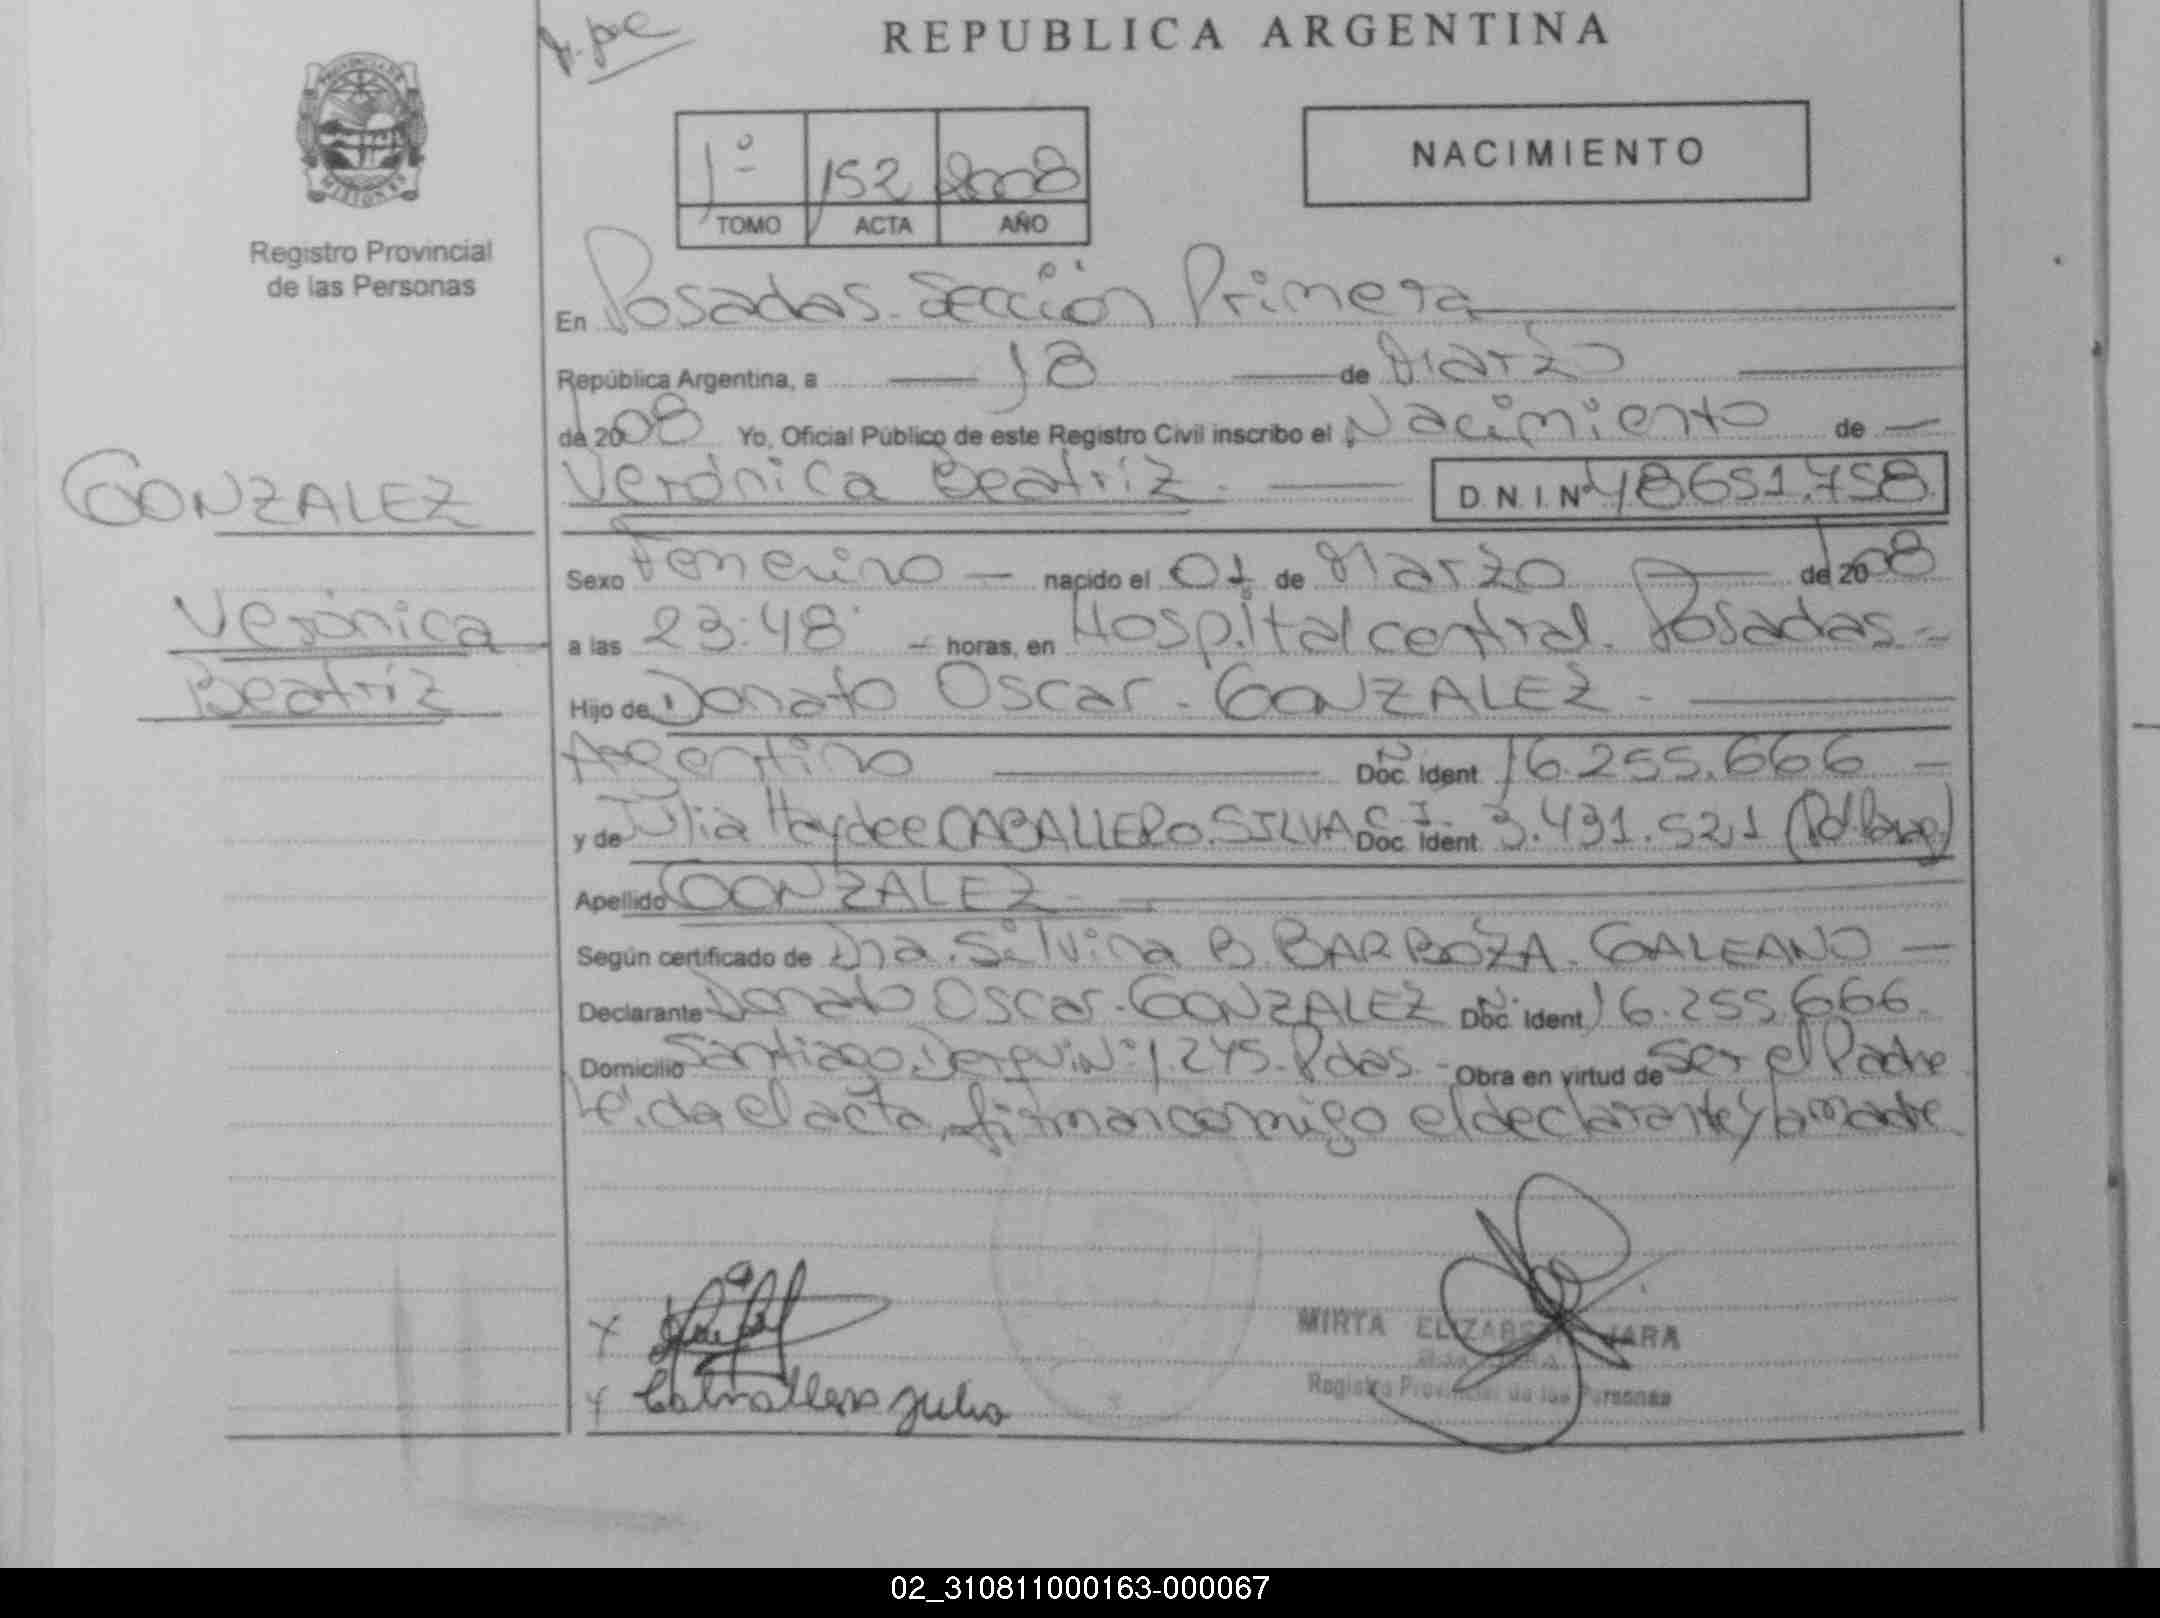 REPUBLICA ARGENTINA
1º 152 2008
TOMO ACTA AÑO
NACIMIENTO
Registro Provincial
de las Personas
En Posadas. Sección Primera
República Argentina, a 18 de Marzo
de 2008 Yo, Oficial Público de este Registro Civil inscribo el Nacimiento de
GONZALEZ
Verónica Beatríz. D.N.I. Nº 48651.758
Sexo Femenino nacido el 01 de Marzo de 2008
Verónica
Beatríz
a las 23:48 horas, en Hospital central. Posadas
Hijo de Donato Oscar. GONZALEZ
Argentino Doc. Ident 16.255.666
y de Julia Haydee CABALLERO. SILVA C.I. Doc. Ident 3.431.521
Apellido GONZALEZ
Según certificado de Dra. Silvina B. BARBOZA. GALEANO
Declarante Donato Oscar. GONZALEZ Doc. Ident 16.255.666.
Domicilio Santiago Derqui Nº 1.245. Pdas. Obra en virtud de ser el Padre
Leída el acta, firman conmigo el declarante y la madre
MIRTA ELIZABE JARA
Registro Provincial de las Personas
Caballero Julia
02_310811000163-000067